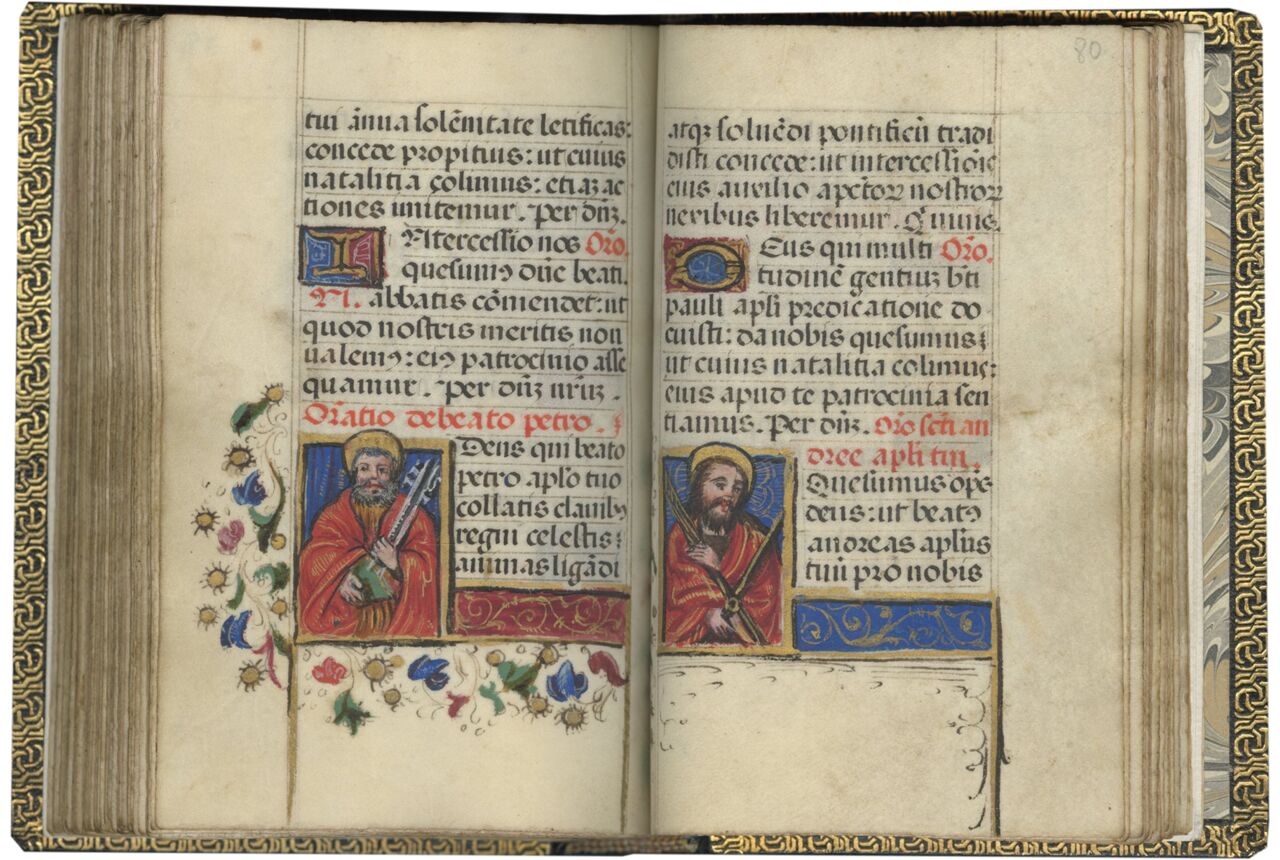 tui ãnua solẽnitate letificas:
concede propitius: ut cuius
natalitia colimus: etiaʒ ac
tiones imitemur. Per dñʒ.
INtercessio nos Orõ.
quesumꝰ dñe beati.
N. abbatis cõmendet: ut
quod nostris meritis non
ualemꝰ: eiꝰ patrocinio asse
quamur. Per dñʒ nr̃uʒ.
Oratio de beato petro.
Deus qui beato
petro apl̃o tuo
collatis clauibꝰ
regni celestis:
animas ligãdi
80
atqʒ soluẽdi pontificiũ tradi
disti concede: ut intercessiõis
eius auxilio a pctõꝝ nostroꝝ
nexibus liberemur. Qui uiuis.
DEus qui multi Orõ.
tudinẽ gentiuʒ bt̃i
pauli apl̃i predicatione do
cuisti: da nobis quesumus:
ut cuius natalitia colimus:
eius apud te patrocinia sen
tiamus. Per dñʒ. Orõ scti an
dree apl̃i tui.
Quesumus ops
deus: ut beatꝰ
andreas apl̃us
tuũ pro nobis